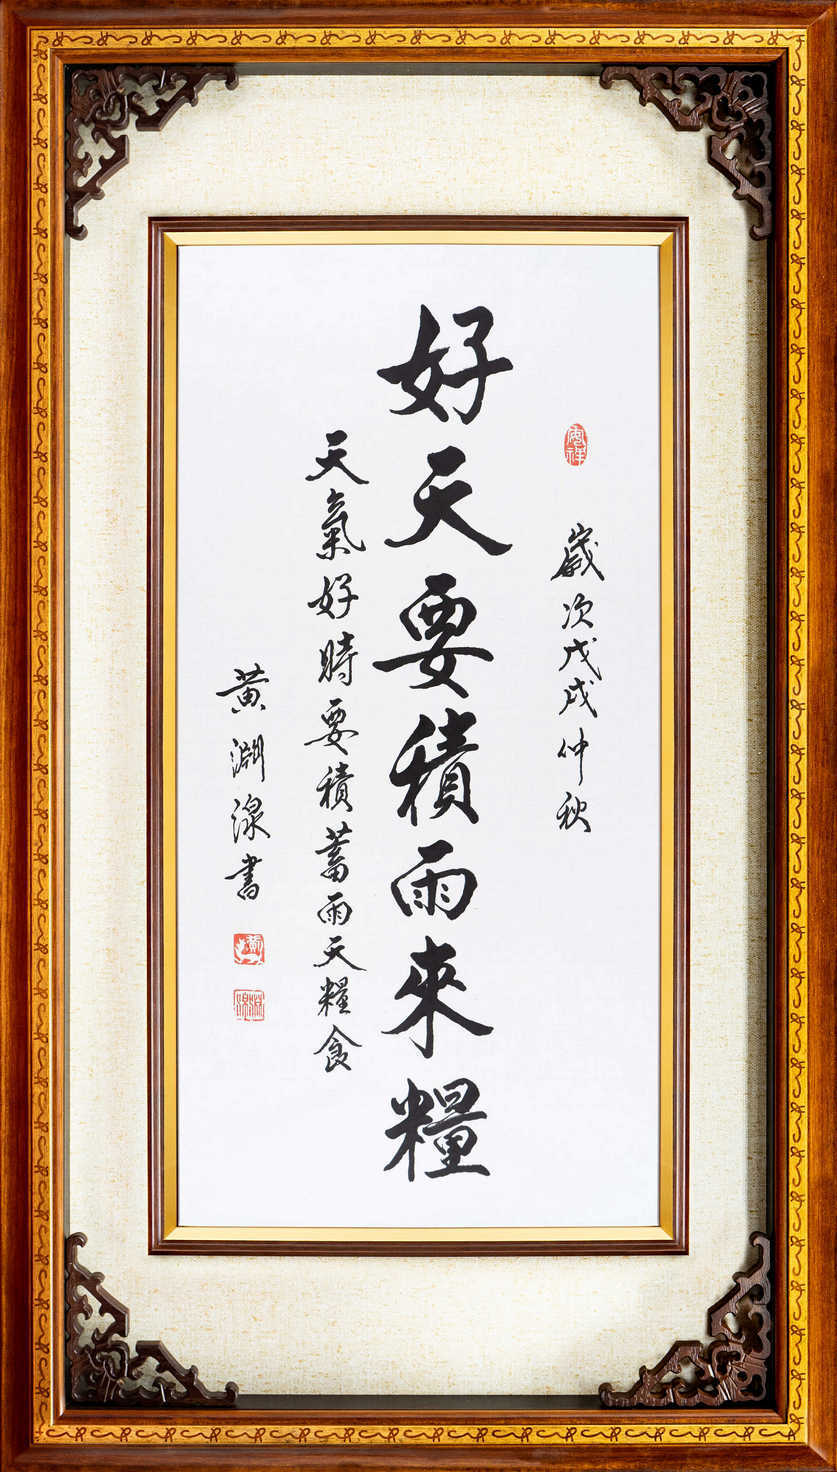 歲次戊戌仲秋
好天要積雨來糧
天氣好時要積蓄雨天糧食
黃淵湶書